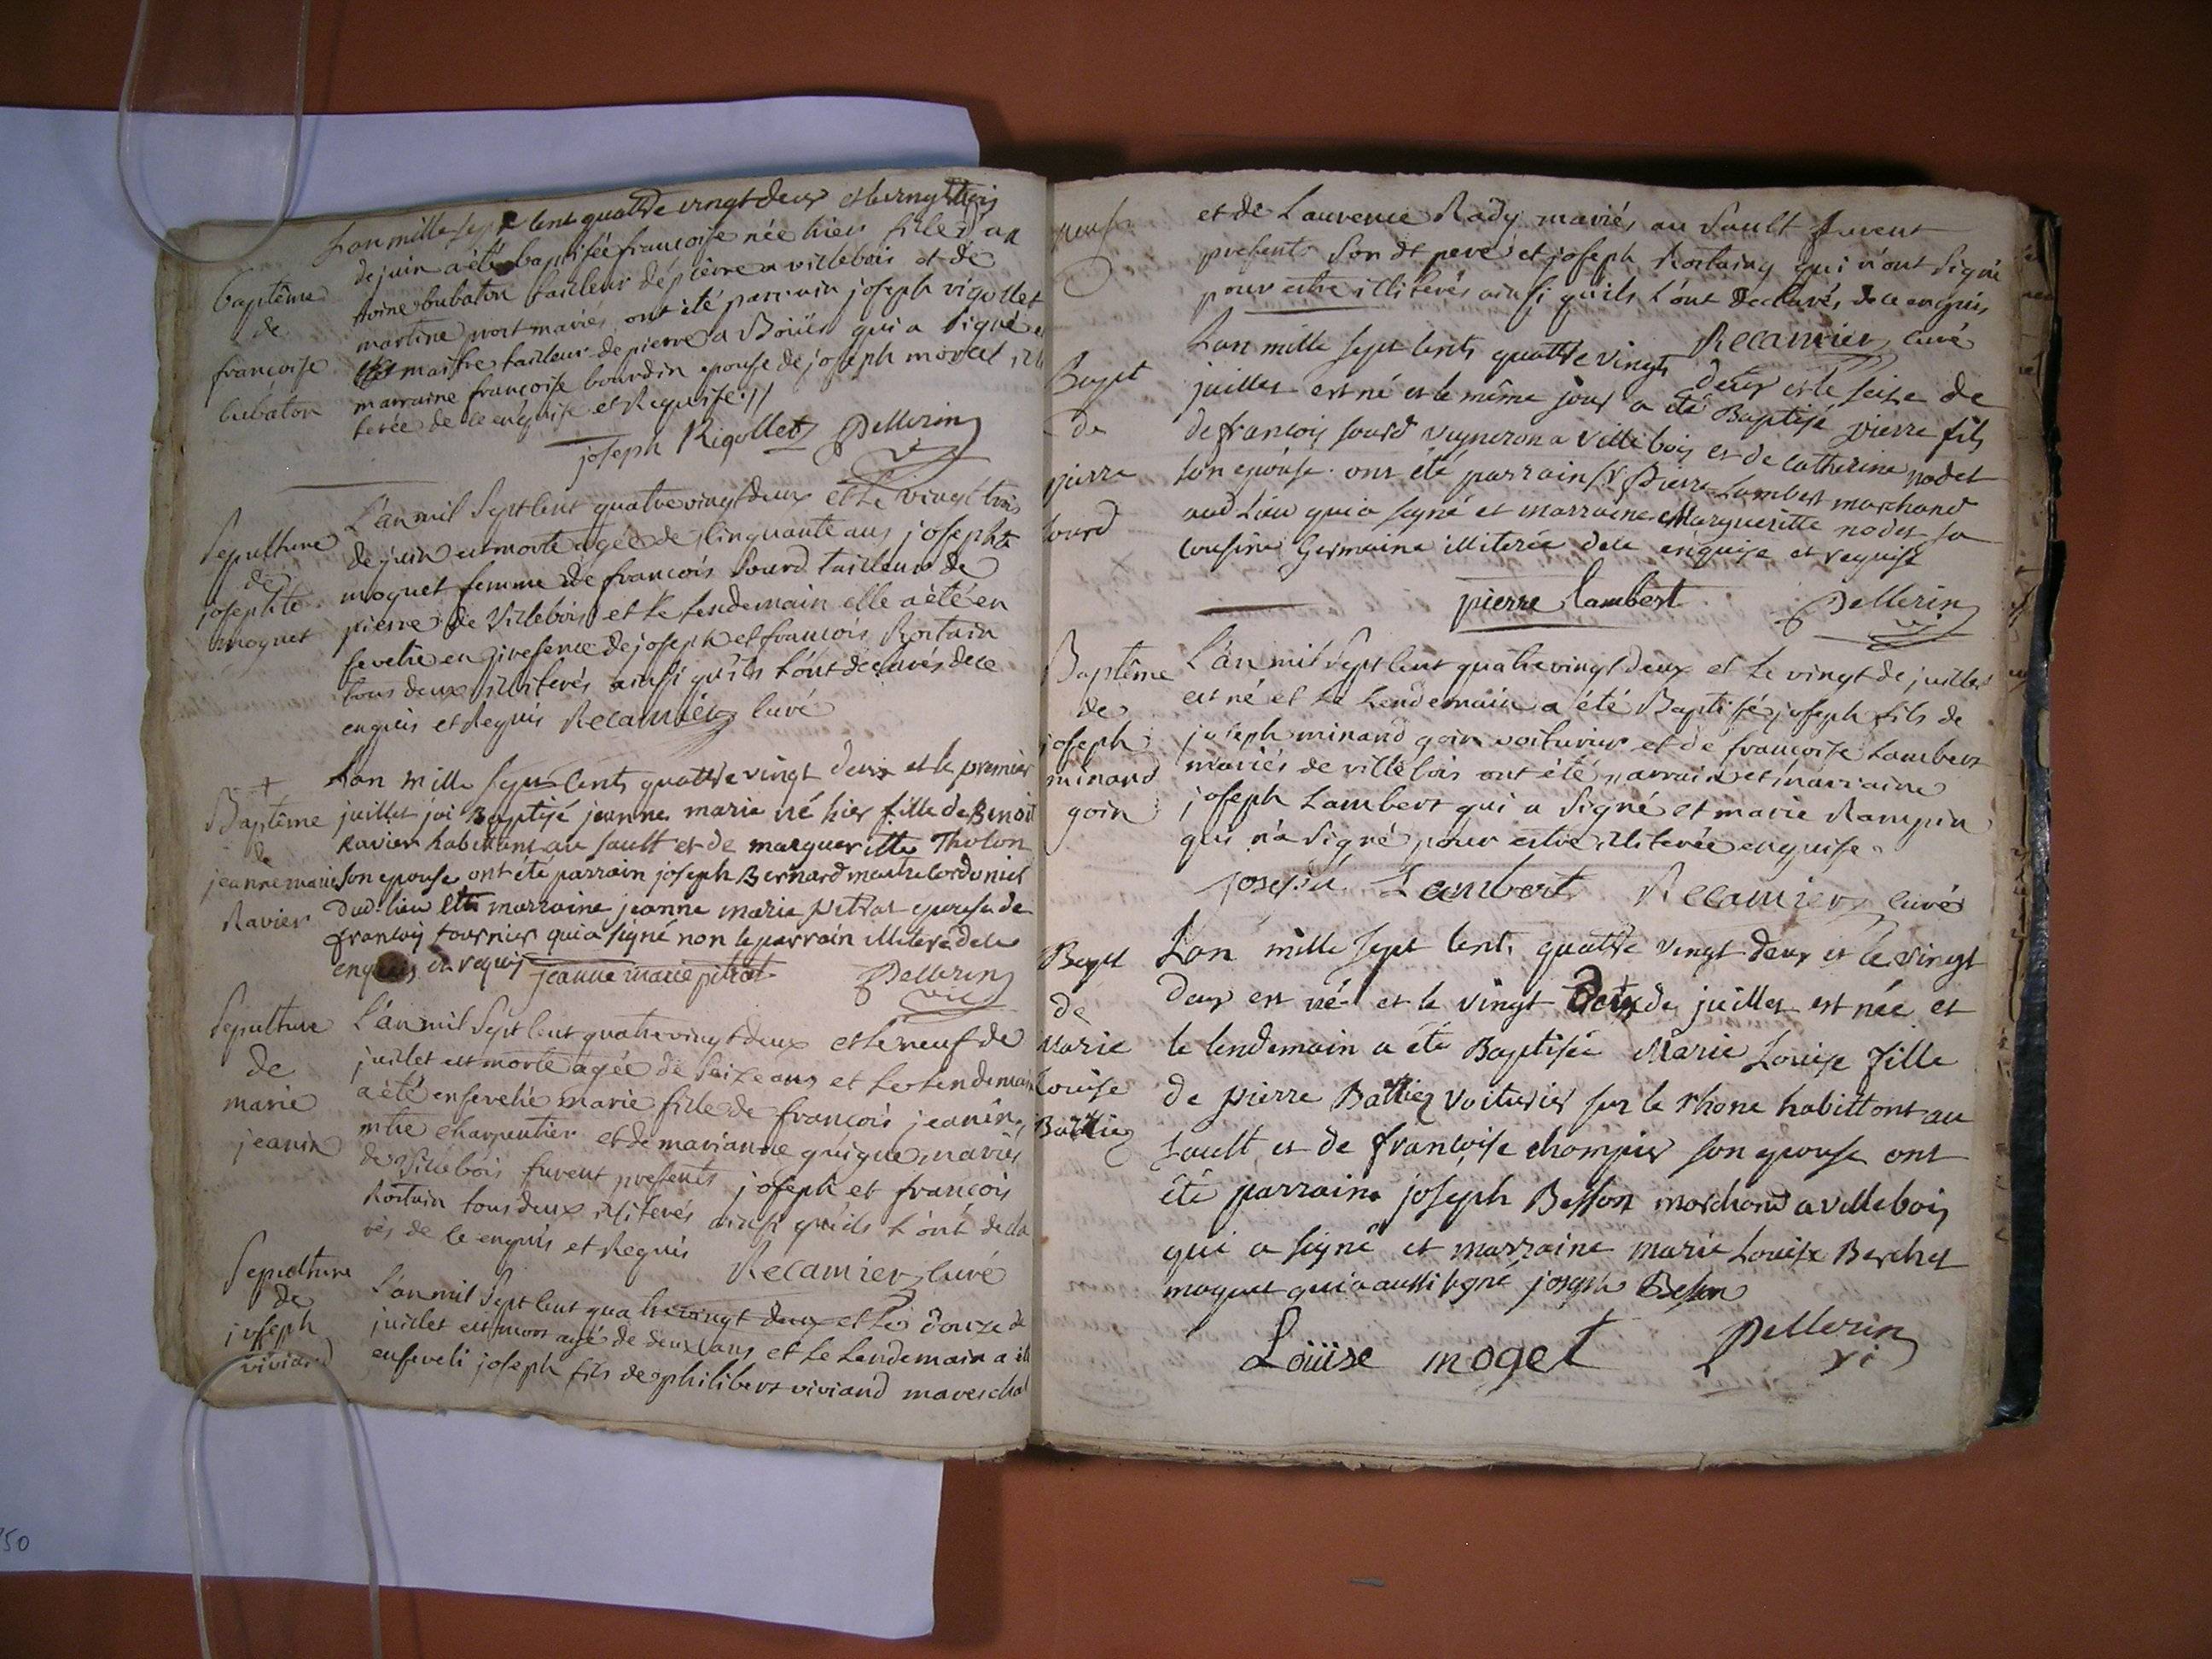 Lan mille sept cent quattre vingt deux et le vingt trois
de juin a été baptisée francoise née hier fille d'an
toine bubaton tailleur de pierre a villebois et de
martine prost mariés ont été parrain joseph rigollet
maitre tailleur de pierre a Boüis qui a signé et
marraine francoise bourdin epouse de joseph morel illi
terée de ce enquise et Requise //
baptême
de
francoise
bubaton
joseph Rigollet Pellerin
L'an mil sept cent quatre vingt deux et le vingt trois
de juin est morte agée de cinquante ans josephte
moquet femme de francois Sourd tailleur de
pierre de Villebois et le lendemain elle a été en
sevelie en presence de joseph et francois Rostain
tous deux illiterés ainsi qu'ils l'ont declarés de ce
enquis et Requis Recamier curé
Sepulture
de
josephte
moquet
Lan mille sept cents quattre vingt deux et le premier
juillet jai Baptisé jeanne marie né hier fille de Benoit
Ravier habittant au sault et de margueritte Tholon
son epouse ont été parrain joseph Bernard maitre cordonier
dud. lieu et marraine jeanne marie pitrat epouse de
francois tournier qui a signé non le parrain illiteré de ce
enquis et requis jeanne marie pitrat Pellerin
vic
+
Baptême
de
jeanne marie
Ravier
L'an mil sept cent quatre vingt deux et le neuf de
juillet est morte agée de seize ans et le lendemain
a été ensevelie marie fille de francois jeanin,
mtre charpentier et de marianne quique mariés
de Villebois furent presents joseph et francois
Rostain tous deux illiterés ainsi qu'ils l'ont decla
rés de ce enquis et Requis Recamier curé
Sepulture
de
marie
jeanin
L'an mil sept cent quatre vingt deux et le douze de
juillet est mort agé de deux ans et le lendemain a été
enseveli joseph fils de philibert viviand mareschal
Sepulture
de
joseph
viviand
et de Laurence Rady mariés au Sault furent
presents Son dt pere et joseph Rostaing qui n'ont signé
pour estre illiterés ainsi qu'ils l'ont declarés de ce enquis
Recamier curé
Lan mille sept cents quattre vingt deux et le seize de
juillet est né et le même jour a été Baptisé pierre fils
de francois sourd vigneron a villebois et de catherine nodet
son epouse. ont été parrain Sr Pierre Lambert marchand
aud Lieu qui a signé et marraine Margueritte nodet sa
cousine Germaine illiterée de ce enquise et requise
Bapt
de
pierre
sourd
pierre lambert Pellerin
vi
L'an mil sept cent quatre vingt deux et le vingt de juillet
est né et le Lendemain a été Baptisé joseph fils de
joseph minand goin voiturier et de francoise Lambert
mariés de villebois ont été parrain et marraine
joseph Lambert qui a signé et marie Rampin
qui n'a signé pour estre illiterée enquise
Baptême
de
joseph
minand
goin
joseph Lambert Recamier curé
Lan mille sept cents quattre vingt deux et le vingt
deux est né et le vingt deux de juillet est née et
le lendemain a été Baptisée Marie Louise fille
de pierre Battiez voiturier sur le rhone habittant au
sault et de francoise chompier son epouse ont
été parrain joseph Besson marchand a villebois
qui a signé et marraine marie Louise Berchet
moquet qui a aussi signé joseph Besson
Bapt
de
Marie
Louise
Battiez
Loüise moget Pellerin
vi